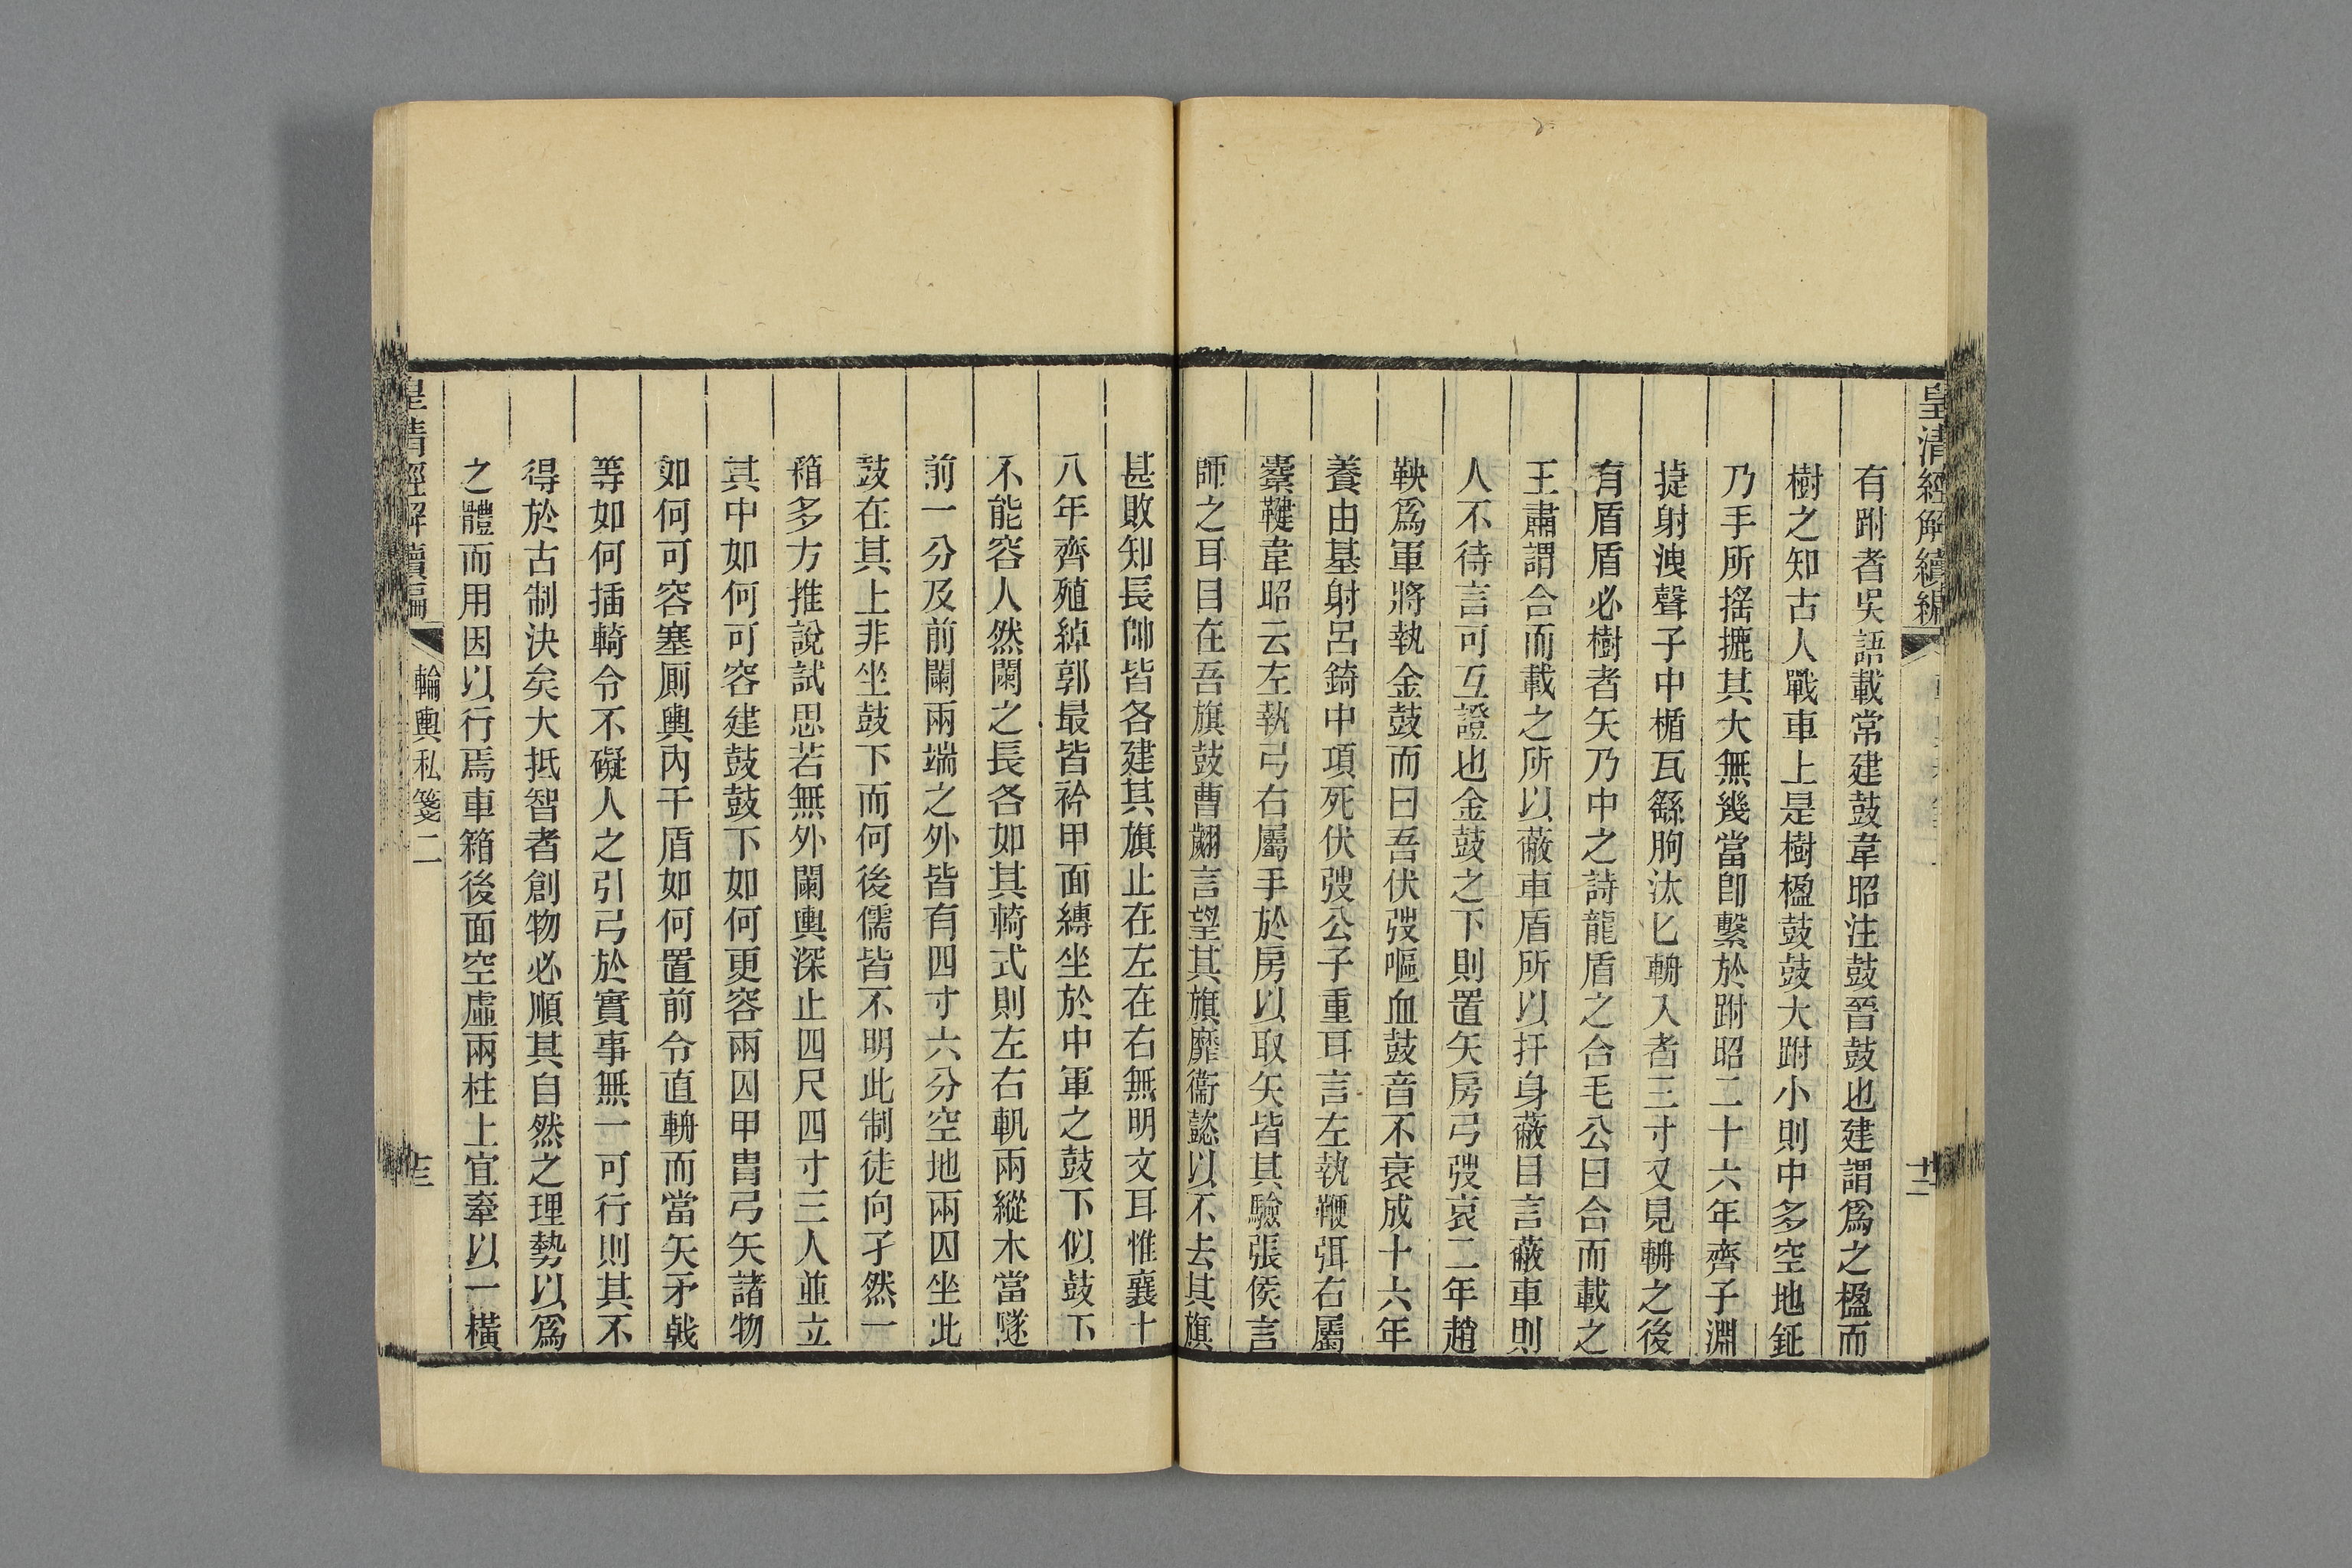 皇清經解續編
十二
有跗者吳語載常建鼓韋昭注鼓晉鼓也建謂爲之楹而
樹之知古人戰車上是樹楹鼓鼓大跗小則中多空地鉦
乃手所搖摝其大無幾當卽繫於跗昭二十六年齊子淵
捷射洩聲子中楯瓦繇朐汰匕輈入者三寸又見輈之後
有盾盾必樹者矢乃中之詩龍盾之合毛公曰合而載之
王肅謂合而載之所以蔽車盾所以扞身蔽目言蔽車則
人不待言可互證也金鼓之下則置矢房弓弢哀二年趙
鞅爲軍將執金鼓而曰吾伏弢嘔血鼓音不衰成十六年
養由基射呂錡中項死伏弢公子重耳言左執鞭弭右屬
櫜鞬韋昭云左執弓右屬手於房以取矢皆其驗張侯言
師之耳目在吾旗鼓曹劌言望其旗靡衞懿以不去其旗
甚敗知長帥皆各建其旗止在左在右無明文耳惟襄十
八年齊殖綽郭最皆衿甲面縛坐於中軍之鼓下似鼓下
不能容人然闌之長各如其輢式則左右軓兩縱木當隧
前一分及前闌兩端之外皆有四寸六分空地兩囚坐此
鼓在其上非坐鼓下而何後儒皆不明此制徒向孑然一
箱多方推說試思若無外闌輿深止四尺四寸三人並立
其中如何可容建鼓鼓下如何更容兩囚甲胄弓矢諸物
如何可容塞厠輿內干盾如何置前令直輈而當矢矛戟
等如何插輢令不礙人之引弓於實事無一可行則其不
得於古制決矣大抵智者創物必順其自然之理勢以爲
之體而用因以行焉車箱後面空虛兩柱上宜牽以一橫
皇清經解續編
輪輿私箋二